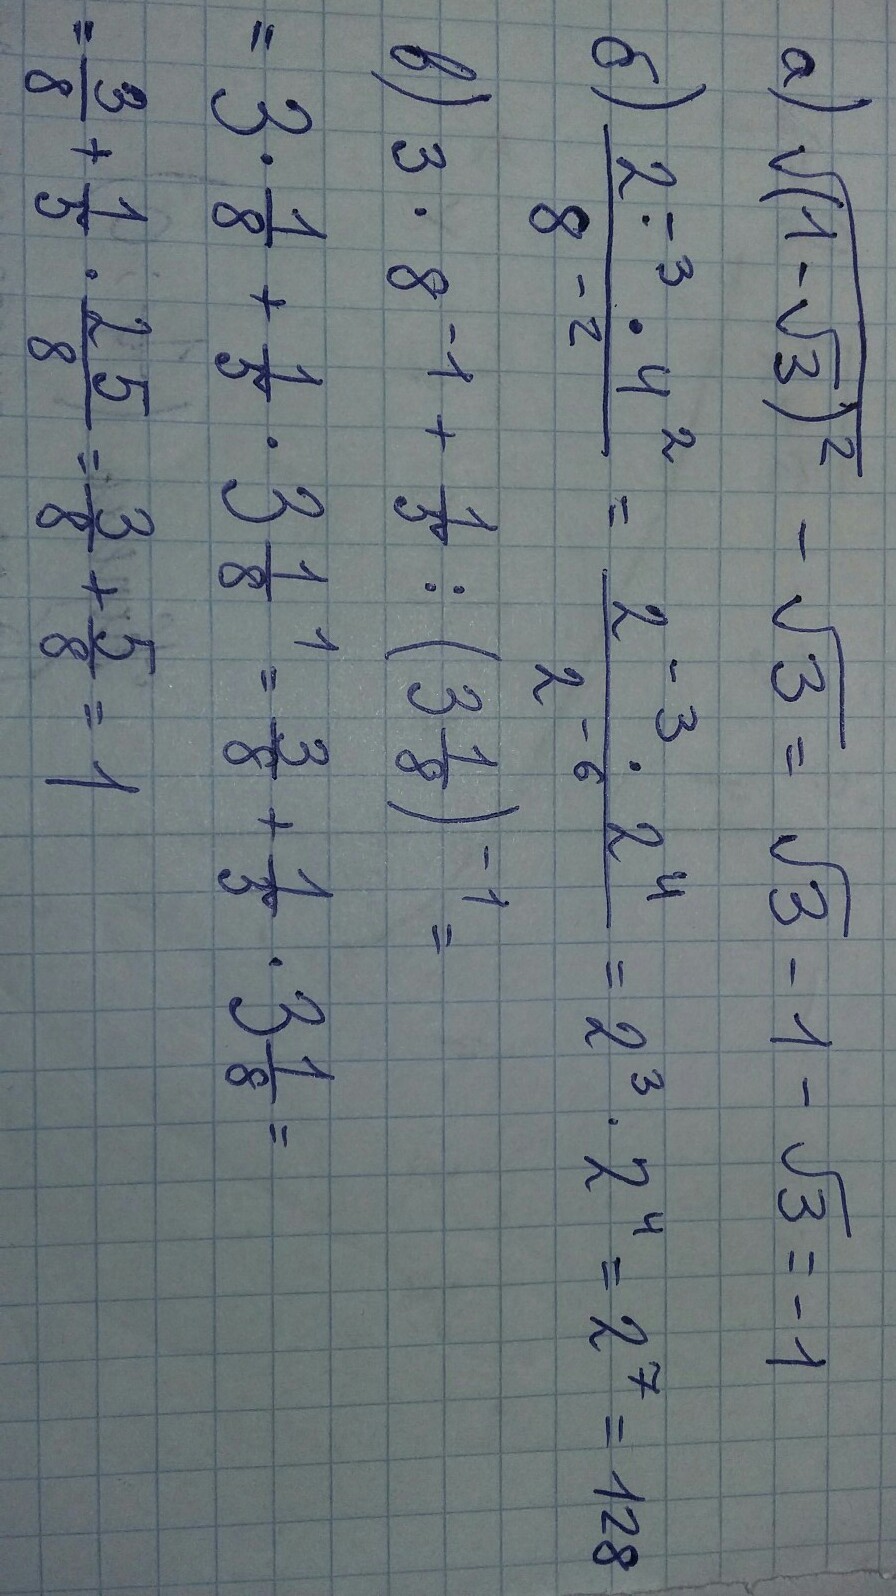 а) √(1-√3)² - √3 = √3 - 1 - √3 = -1
б) (2⁻³ · 4²)/(8⁻²) = (2⁻³ · 2⁴)/(2⁻⁶) = 2³ · 2⁴ = 2⁷ = 128
в) 3 · 8⁻¹ + 1/5 : (3 1/8)⁻¹ =
= 3 · 1/8 + 1/5 · 3 1/8 ¹ = 3/8 + 1/5 · 3 1/8 =
= 3/8 + 1/5 · 25/8 = 3/8 + 5/8 = 1